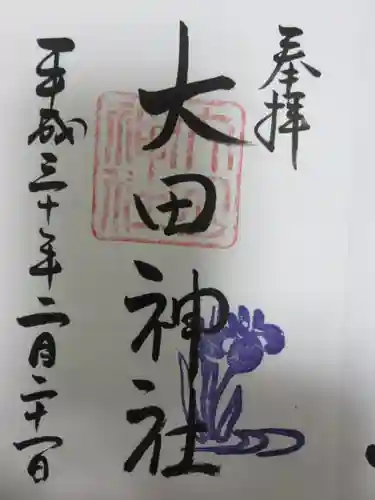 奉拝
大田神社
平成三十年二月二十一日